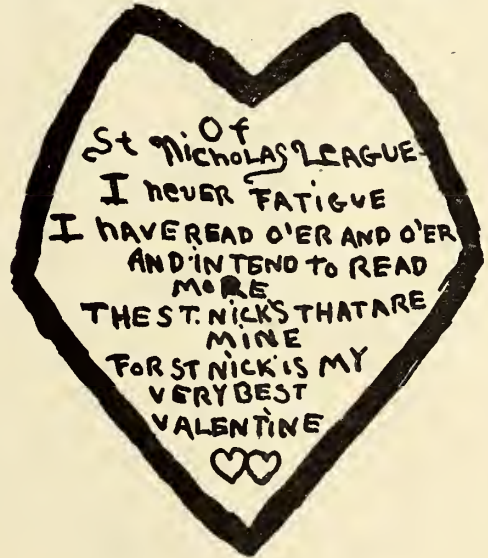 Of
St NicholAS LEAGUE
I NEVER FATIGUE
I hAVE READ O'ER AND O'ER
AND INTEND TO READ
MORE
THE ST. NICKS THAT ARE
MINE
FOR ST NICK IS MY
VERY BEST
VALENTINE